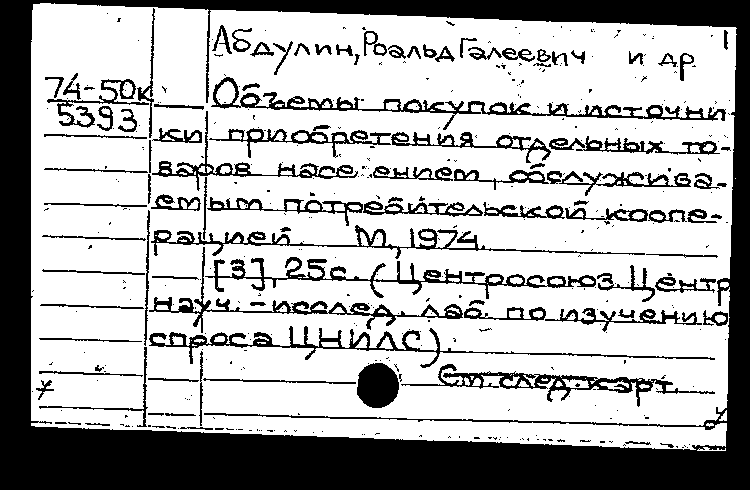 Абдулин, Роальд Галеевич и др
74-50к
5393
Объемы покупок и источни-
ки приобретения отдельных то-
варов населением, обслужива-
емым потребительской коопе-
рацией. М., 1974.
[3], 25с. (Центросоюз. Центр
науч.-исслед. лаб. по изучению
спроса ЦНИЛС).
См. след. карт.